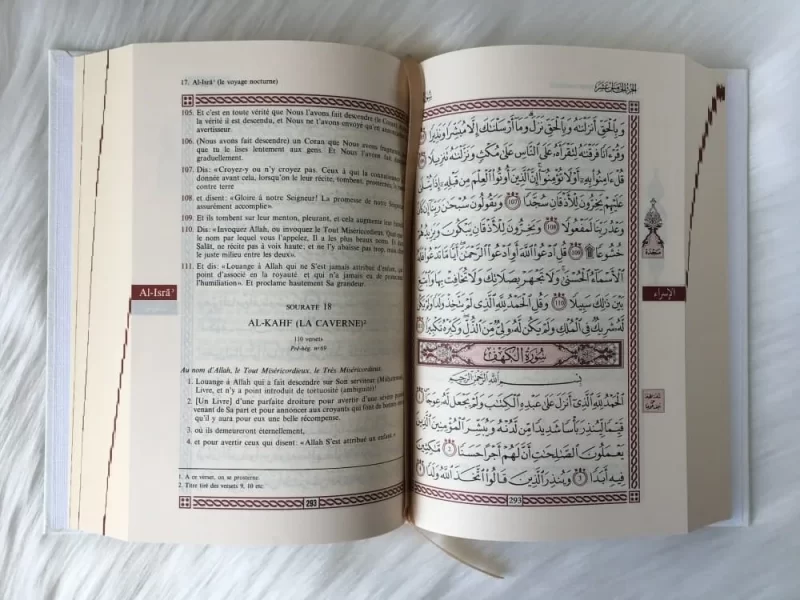 17. Al-Isrā' (le voyage nocturne)
105. Et c'est en toute vérité que Nous l'avons fait descendre (le Coran),
la vérité il est descendu, et Nous ne t'avons envoyé qu'en
avertisseur.
106. (Nous avons fait descendre) un Coran que Nous avons fragmenté,
que tu le lises lentement aux gens. Et Nous l'avons fait
graduellement.
107. Dis: «Croyez-y ou n'y croyez pas. Ceux à qui la connaissance
donnée avant cela, lorsqu'on le leur récite, tombent, prosternés, le
contre terre
108. et disent: «Gloire à notre Seigneur! La promesse de notre Seigneur
assurément accomplie».
109. Et ils tombent sur leur menton, pleurant, et cela augmente leur
110. Dis: «Invoquez Allah, ou invoquez le Tout Miséricordieux. Quel que
le nom par lequel vous l'appelez, Il a les plus beaux noms. Et dans
Ṣalāt, ne récite pas à voix haute; et ne l'y abaisse pas trop, mais
le juste milieu entre les deux».
111. Et dis: «Louange à Allah qui ne S'est jamais attribué d'enfant,
point d'associé en la royauté, et qui n'a jamais eu de protecteur
l'humiliation». Et proclame hautement Sa grandeur.
Al-Isrā'
SOURATE 18
AL-KAHF (LA CAVERNE)²
110 versets
Pré-hég. n°69
Au nom d'Allah, le Tout Miséricordieux, le Très Miséricordieux.
1. Louange à Allah qui a fait descendre sur Son serviteur
Livre, et n'y a point introduit de tortuosité (ambiguïté)!
2. [Un Livre] d'une parfaite droiture pour avertir d'une sévère
venant de Sa part et pour annoncer aux croyants qui font de bonnes
qu'il y aura pour eux une belle récompense.
3. où ils demeureront éternellement,
4. et pour avertir ceux qui disent: «Allah S'est attribué un enfant.»
1. A ce verset, on se prosterne.
2. Titre tiré des versets 9, 10 etc.
293
الجزء الخامس عشر
وَبِالْحَقِّ أَنزَلْنَٰهُ وَبِالْحَقِّ نَزَلَ وَمَآ أَرْسَلْنَٰكَ إِلَّا مُبَشِّرًا وَنَذِيرًا
وَقُرْءَانًا فَرَقْنَٰهُ لِتَقْرَأَهُۥ عَلَى النَّاسِ عَلَىٰ مُكْثٍ وَنَزَّلْنَٰهُ تَنزِيلًا
قُلْ ءَامِنُوا۟ بِهِۦٓ أَوْ لَا تُؤْمِنُوٓا۟ إِنَّ الَّذِينَ أُوتُوا۟ الْعِلْمَ مِن قَبْلِهِۦٓ إِذَا يُتْلَىٰ
عَلَيْهِمْ يَخِرُّونَ لِلْأَذْقَانِ سُجَّدًا ١٠٧ وَيَقُولُونَ سُبْحَٰنَ رَبِّنَآ إِن كَانَ
وَعْدُ رَبِّنَا لَمَفْعُولًا ١٠٨ وَيَخِرُّونَ لِلْأَذْقَانِ يَبْكُونَ وَيَزِيدُهُمْ
خُشُوعًا ۩ ١٠٩ قُلِ ادْعُوا۟ اللَّهَ أَوِ ادْعُوا۟ الرَّحْمَٰنَ أَيًّا مَّا تَدْعُوا۟ فَلَهُ
الْأَسْمَآءُ الْحُسْنَىٰ وَلَا تَجْهَرْ بِصَلَاتِكَ وَلَا تُخَافِتْ بِهَا وَابْتَغِ
بَيْنَ ذَٰلِكَ سَبِيلًا ١١٠ وَقُلِ الْحَمْدُ لِلَّهِ الَّذِى لَمْ يَتَّخِذْ وَلَدًا وَلَمْ يَكُن
لَّهُۥ شَرِيكٌ فِى الْمُلْكِ وَلَمْ يَكُن لَّهُۥ وَلِىٌّ مِّنَ الذُّلِّ وَكَبِّرْهُ تَكْبِيرًا
سجدة
الإسراء
سُورَةُ الْكَهْفِ
بِسْمِ اللَّهِ الرَّحْمَٰنِ الرَّحِيمِ
الْحَمْدُ لِلَّهِ الَّذِىٓ أَنزَلَ عَلَىٰ عَبْدِهِ الْكِتَٰبَ وَلَمْ يَجْعَل لَّهُۥ عِوَجَا
قَيِّمًا لِّيُنذِرَ بَأْسًا شَدِيدًا مِّن لَّدُنْهُ وَيُبَشِّرَ الْمُؤْمِنِينَ الَّذِينَ
يَعْمَلُونَ الصَّٰلِحَٰتِ أَنَّ لَهُمْ أَجْرًا حَسَنًا ٢ مَّٰكِثِينَ
فِيهِ أَبَدًا ٣ وَيُنذِرَ الَّذِينَ قَالُوا۟ اتَّخَذَ اللَّهُ وَلَدًا
293